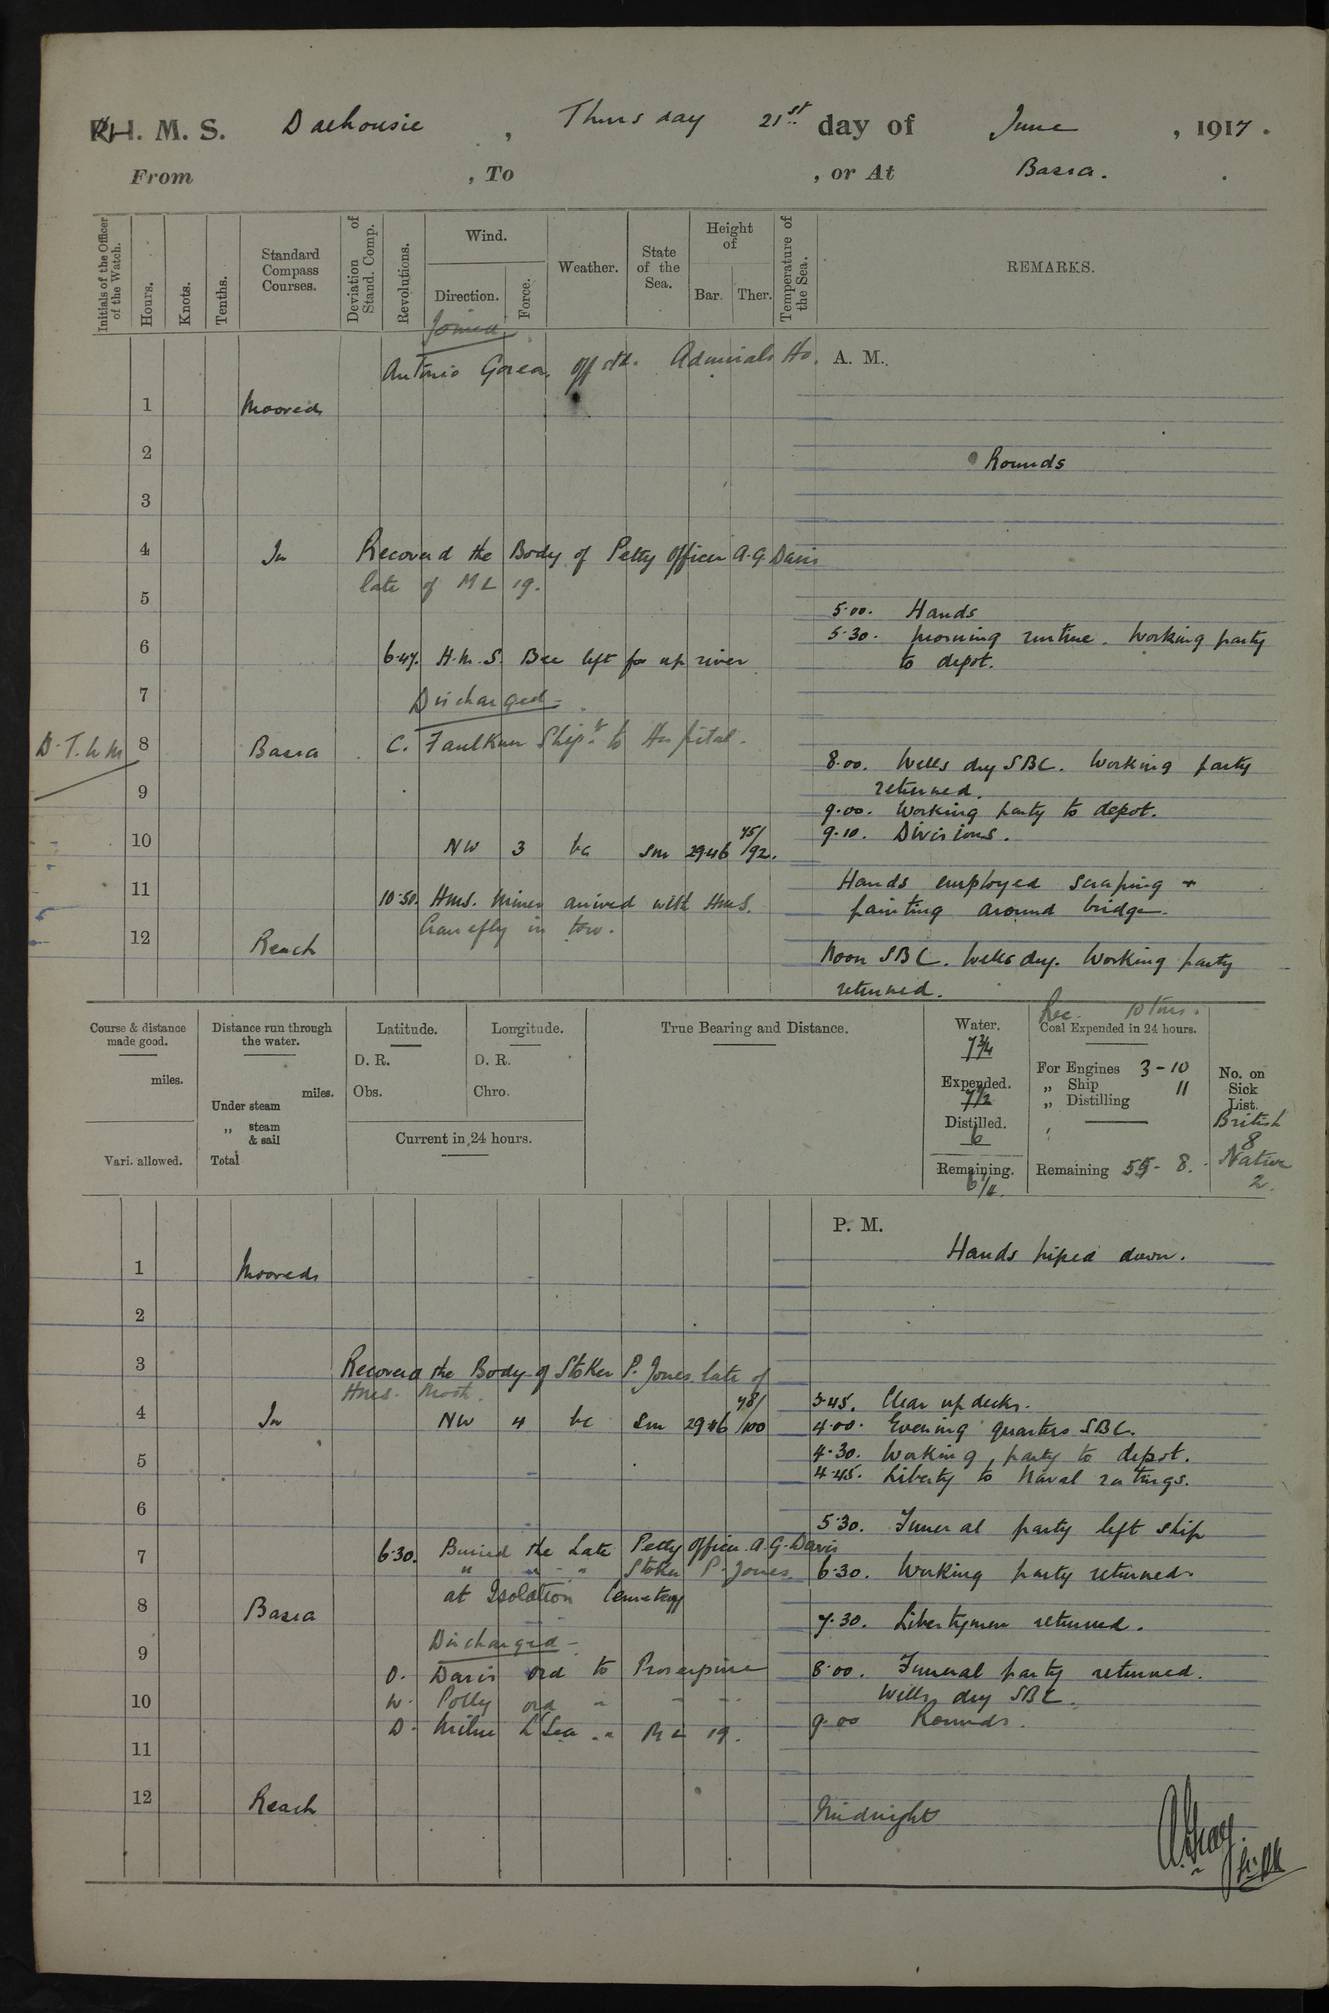 H. M. S. Dalhousie, Thursday 21st day of June, 1917.
From , To , or At Basra.
Initials of the Officer of the Watch.
Hours.
Knots.
Tenths.
Standard Compass Courses.
Deviation of Stand. Comp.
Revolutions.
Wind.
Direction.
Force.
Weather.
State of the Sea.
Height of
Bar.
Ther.
Temperature of the Sea.
REMARKS.
Joined
Antonio Off Std. Admirals Ho. A. M.
1 Moored
2 Rounds
3
4 In Recovered the Body of Petty Officer A.G. Davis
late of ML 19.
5
5.00. Hands
5.30. morning routine. Working party
6
6.47. H.M.S. Bee left for up river
to depot.
7 Discharged
8 Basra C. Faulkner to Hospital.
8.00. Wells dry SBC. Working party
returned.
9
9.00. Working party to depot.
9.10. Divisions.
10 NW 3 bc Sm 29.46 75/92.
Hands employed scraping +
11 10.50. HMS. Miner arrived with HMS.
painting around bridge.
Gran efly in tow.
12 Reach
Noon SBC. Wells dry. Working party
returned.
Course & distance made good.
miles.
Vari. allowed.
Distance run through the water.
miles.
Under steam
„ steam & sail
Total
Latitude.
D. R.
Obs.
Longitude.
D. R.
Chro.
Current in 24 hours.
True Bearing and Distance.
Water.
7 3/4
Expended.
7 1/2
Distilled.
6
Remaining.
6 1/4.
Rec. 10 Tons.
Coal Expended in 24 hours.
For Engines 3-10
„ Ship 11
„ Distilling
Remaining 55- 8.
No. on Sick List.
British
8
Native
2.
P. M.
Hands piped down.
1 Moored
2
3 Recovered the Body of Stoker P. Jones late of
HMS. Moth.
3.45. Clear up decks.
4 In NW 4 bc Sm 29.46 78/100
4.00. Evening quarters SBC.
4.30. Working party to depot.
5
4.45. Liberty to Naval ratings.
6
5.30. Funeral party left ship
7 6.30. Buried the Late Petty Officer A.G. Davis
" " " Stoker P. Jones
6.30. Working party returned.
at Isolation Cemetery
8 Basra
7.30. Libertymen returned.
Discharged -
9
O. Davis ord to Proserpine
8.00. Funeral party returned.
Wells dry SBC.
10 W. Polly ord " " "
9.00 Rounds.
D. Milne L Sea " ML 19.
11
12 Reach
Midnight